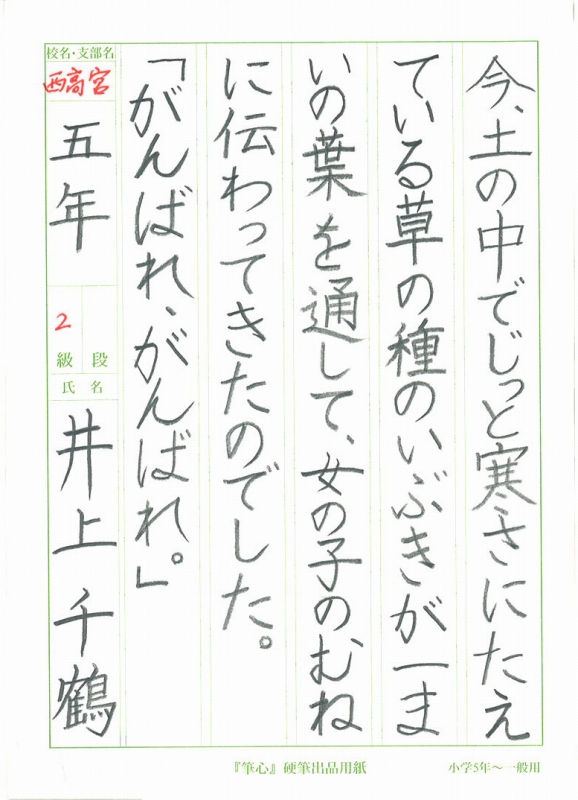 今、土の中でじっと寒さにたえ
ている草の種のいぶきが一ま
いの葉を通して、女の子のむね
に伝わってきたのでした。
「がんばれ、がんばれ。」
校名・支部名
西高宮
五年
2
級 段
氏 名
井上 千鶴
『筆心』硬筆出品用紙
小学5年～一般用